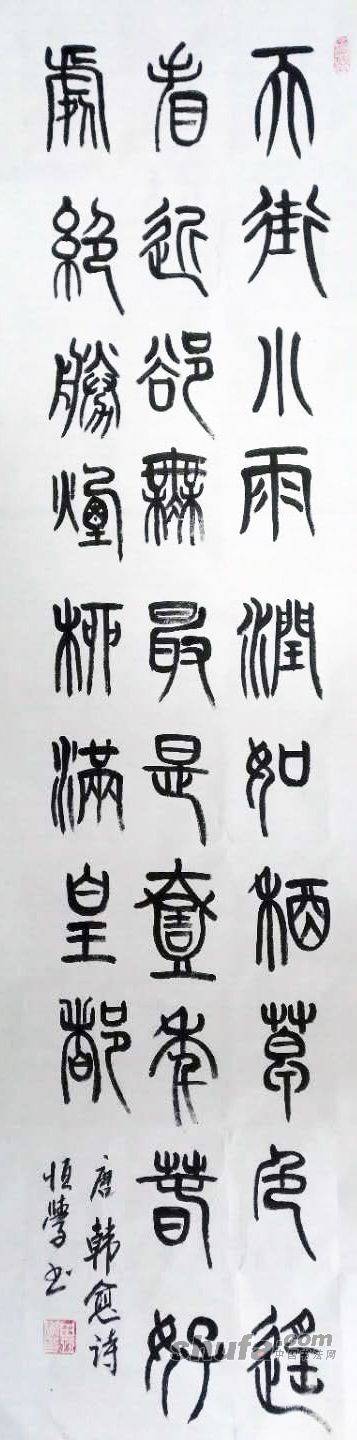 天街小雨潤如酥草色遥
看近卻無最是壹年春好
處絕勝煙柳滿皇都
唐韓愈诗
恒书
shufa.com
中国书法网